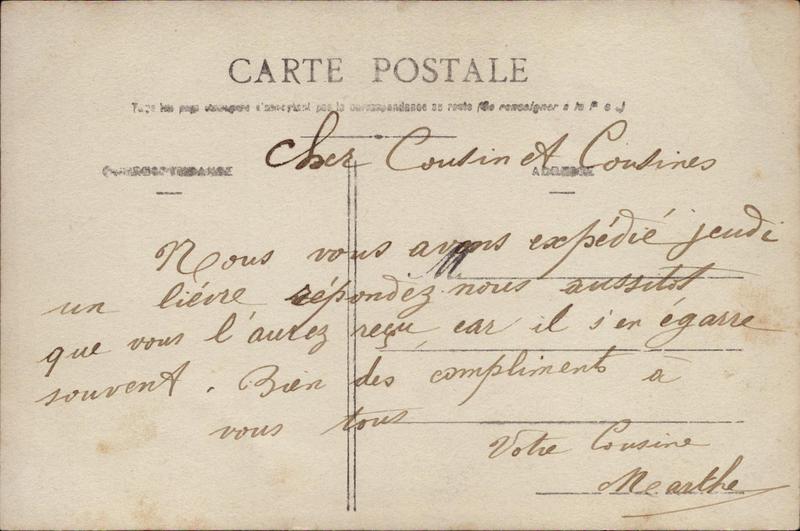 CARTE POSTALE
Tous les pays étrangers n'acceptent pas la correspondance au recto (Se renseigner à la Poste)
Cher Cousin et Cousines
CORRESPONDANCE
ADRESSE
M
Nous vous avons expédié jeudi
un liévre répondez nous aussitot
que vous l'aurez reçu, car il s'en égarre
souvent. Bien des compliments à
vous tous
Votre Cousine
Marthe